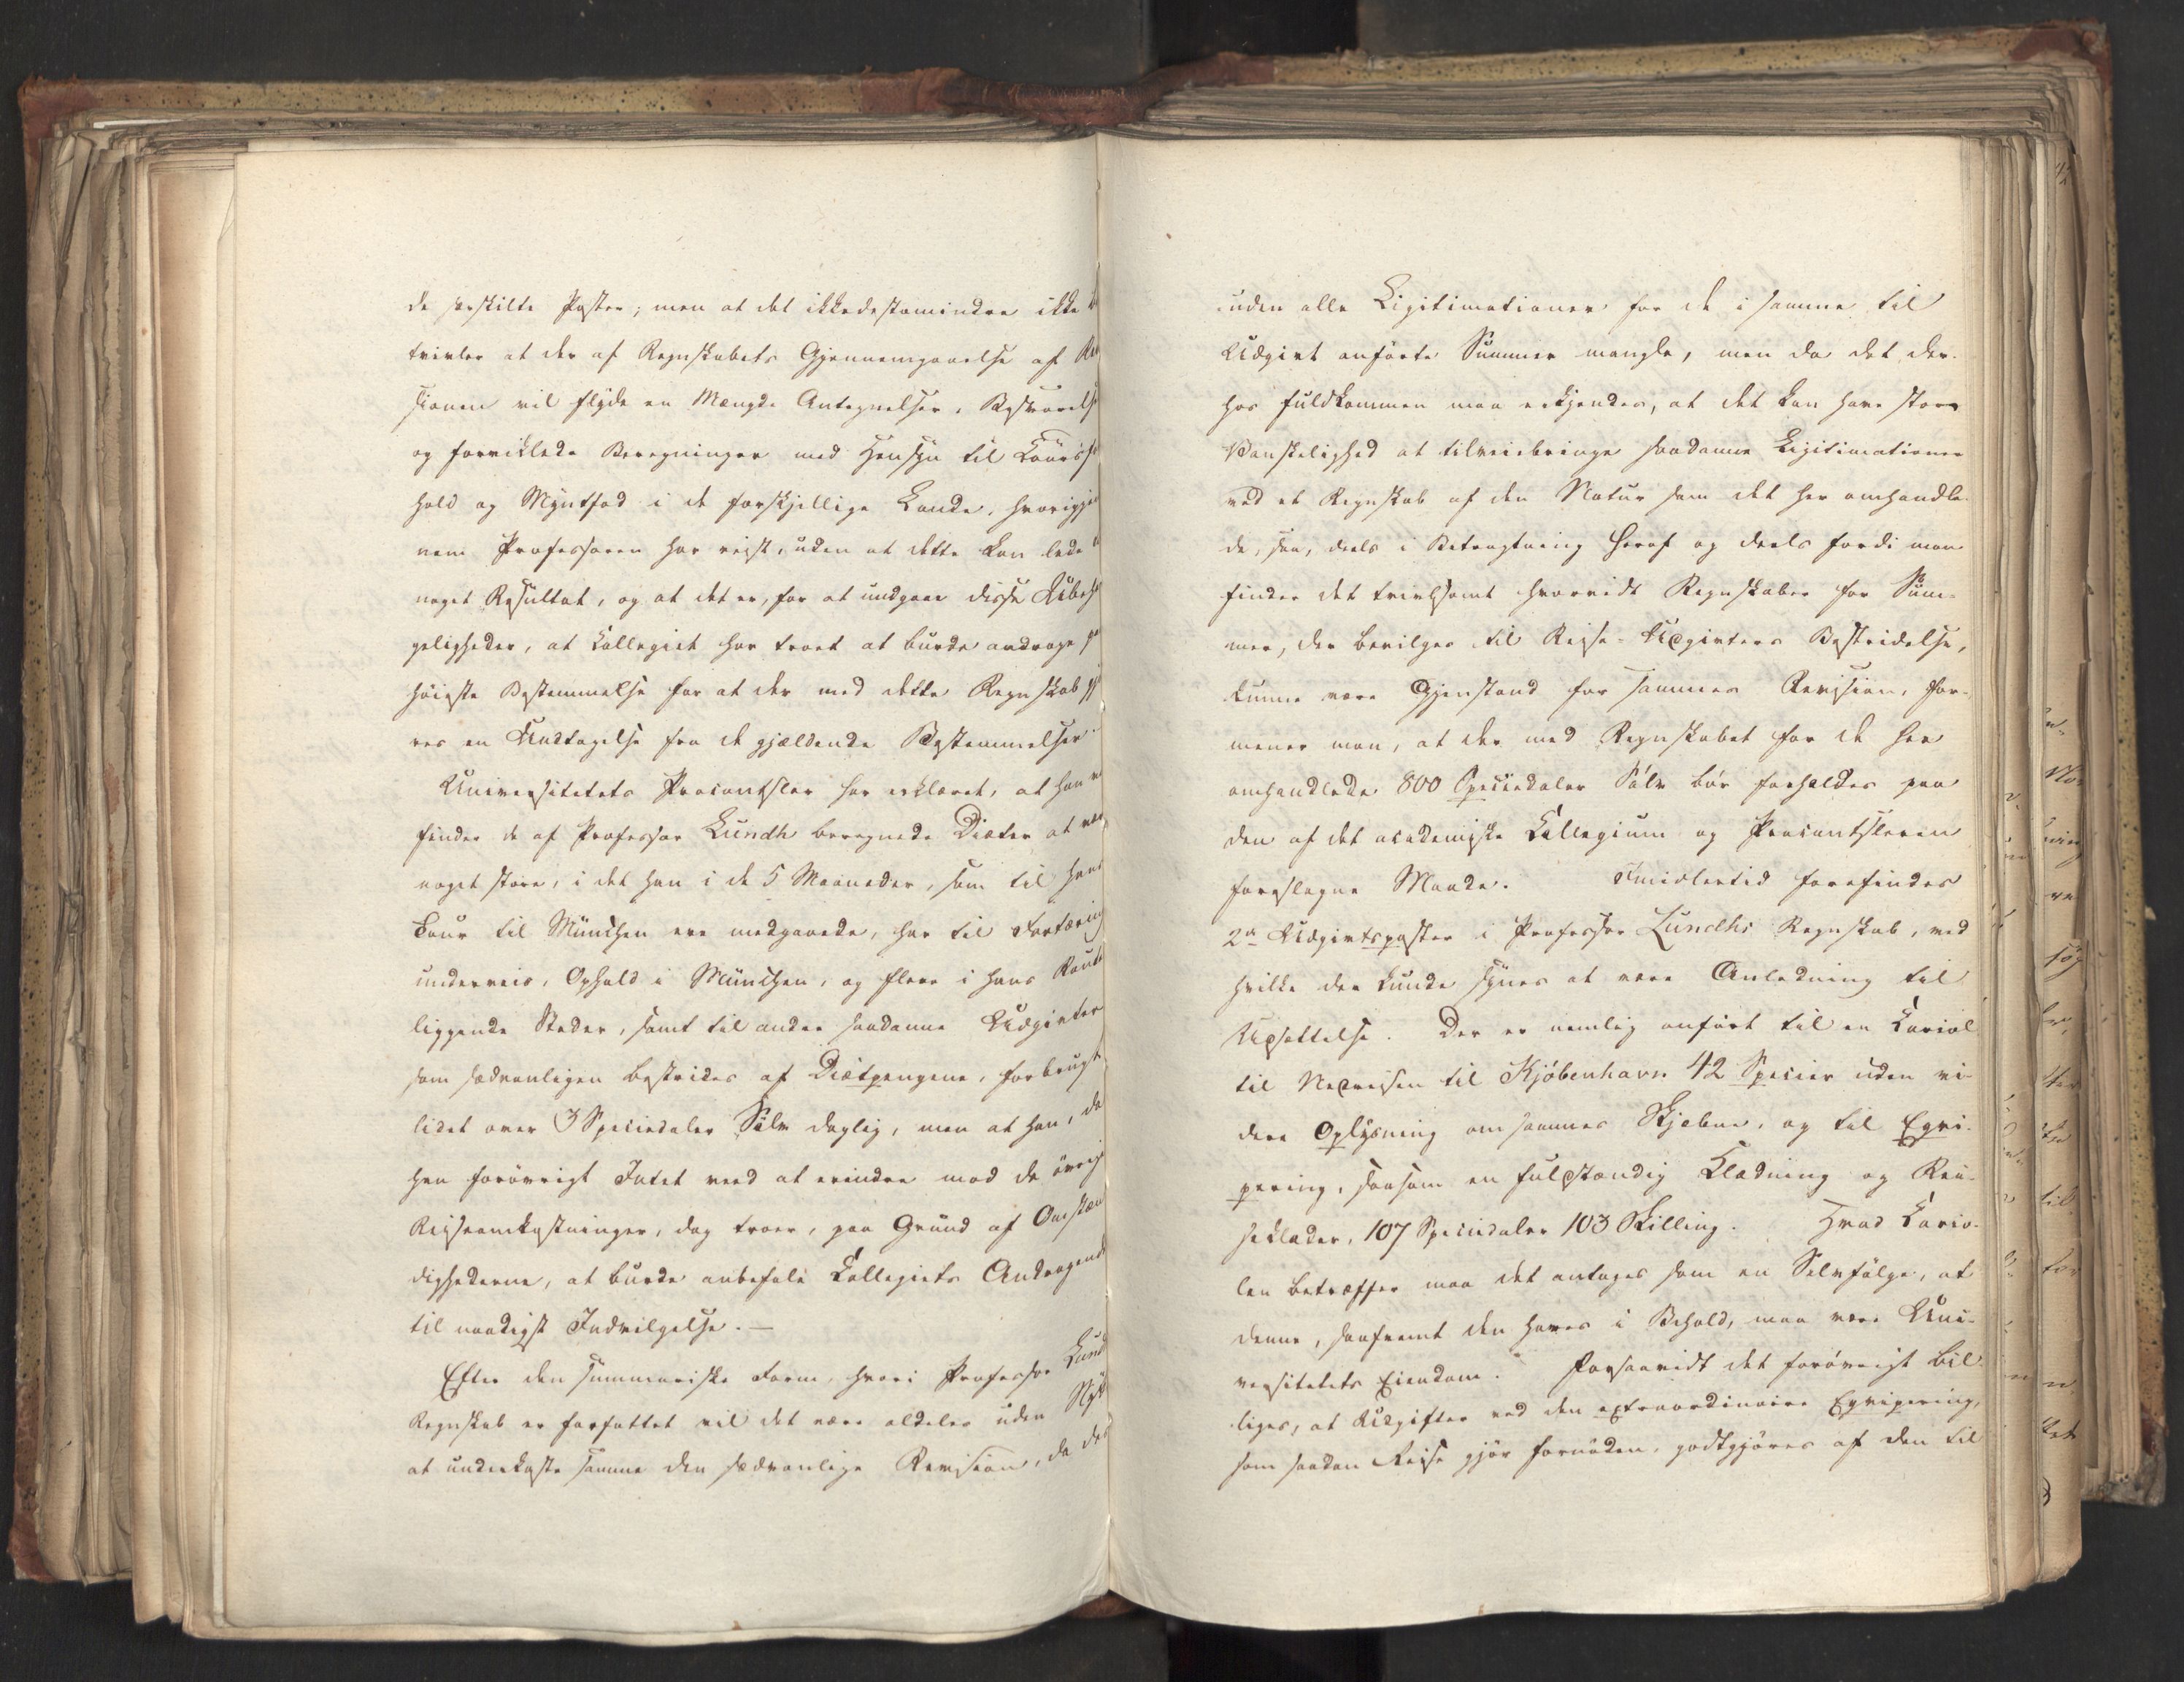 de særskilte Poster; men at det ikkedestomindre ikke
tvivler at der af Regnskabets Gjennemgaaelse af Re
sionen vil flyde en Mængde Antegnelser, Besvarelse
og forviklede Beregninger med Hensyn til Coursfor
hold og Myntfod i de forskjellige Lande, hvorigjen
nem Professoren har reist, uden at dette kan lede
noget Resultat, og at det er, for at undgaae disse Ube
geligheder, at Collegiet har troet at burde andrage
høieste Bestemmelse for at der med dette Regnskab gjø
res en Undtagelse fra de gjældende Bestemmelser.
Universitetets Procantsler har erklæret, at han
finder de af Professor Lundh beregnede Diæter at være
noget store, i det han i de 5 Maaneder, som til hans
Tour til München ere medgaaede, har til Fortæring
underveis, Ophold i München, og flere i hans Route
liggende Steder, samt til andre saadanne Udgivter
som sædvanligen bestrides af Diætpengene, forbrugt
lidet over 3 Speciedaler Sølv daglig, men at han, da
han forøvrigt Intet veed at erindre mod de øvrige
Reiseomkostninger, dog troer, paa Grund af Omstæn
dighederne, at burde anbefale Collegiets Andragende
til naadigst Indvilgelse. —
Efter den summariske Form, hvori Professor Lund
Regnskab er forfattet vil det være aldeles uden Nytte
at underkaste samme den sædvanlige Revision, da de
uden alle Ligitimationer for de i samme til
Udgivt anførte Summer mangle, men da det der-
hos fuldkommen maa erkjendes, at det kan have store
Vanskelighed at tilveiebringe saadanne Ligitimationer
ved et Regnskab af den Natur som det her omhandle-
de, saa, deels i Betragtning heraf og deels fordi man
finder det tvivlsomt hvorvidt Regnskaber for Sum-
mer, der bevilges til Reise-Udgivters Bestridelse,
kunne være Gjenstand for sammes Revision, for-
mener man, at der med Regnskabet for de her
omhandlede 800 Speciedaler Sølv bør forholdes paa
den af det academiske Collegium og Procantsleren
foreslagne Maade. Imidlertid forefindes
2de Udgivtsposter i Professor Lundhs Regnskab, ved
hvilke der kunde synes at være Anledning til
Udsættelse. Der er nemlig anført til en Cariol
til Nedreisen til Kjøbenhavn 42 Specier uden vi-
dere Oplysning om sammes Skjebne, og til Eqvi-
pering, saasom en fulstændig Klædning og Rei-
seklæder, 107 Speciedaler 103 Skilling. Hvad Cario-
len betræffer maa det antages som en Selvfølge, at
denne, saafremt den haves i Behold, maa være Uni-
versitetets Eiendom. Forsaavidt det forøvrigt bil-
liges, at Udgifter ved den extraordinaire Eqvipering,
som saadan Reise gjør fornøden, godtgjøres af den til